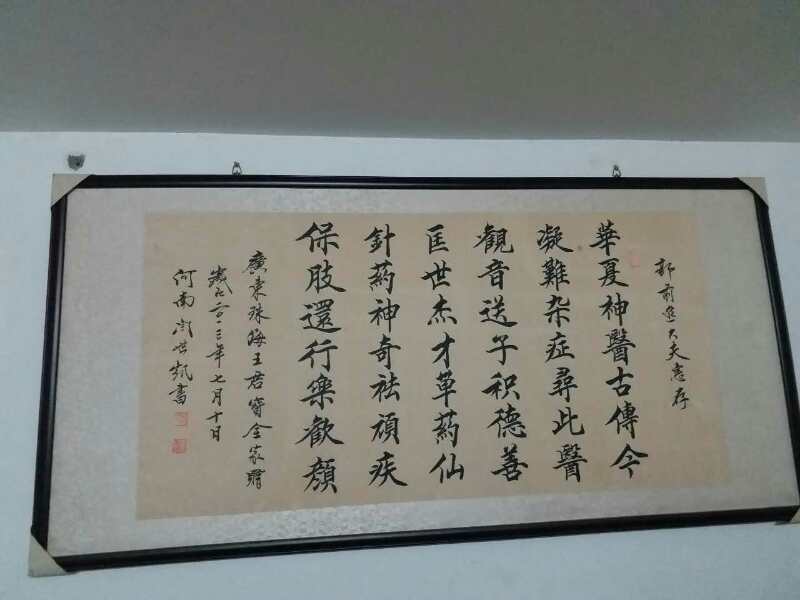 郭前進大夫惠存
華夏神醫古傳今
凝難杂症尋此醫
觀音送子积德善
匡世杰才草药仙
針药神奇祛頑疾
保肢還行樂歡顏
廣東珠海王君寶全家贈
歲在二〇一三年七月十日
河南 世凱書